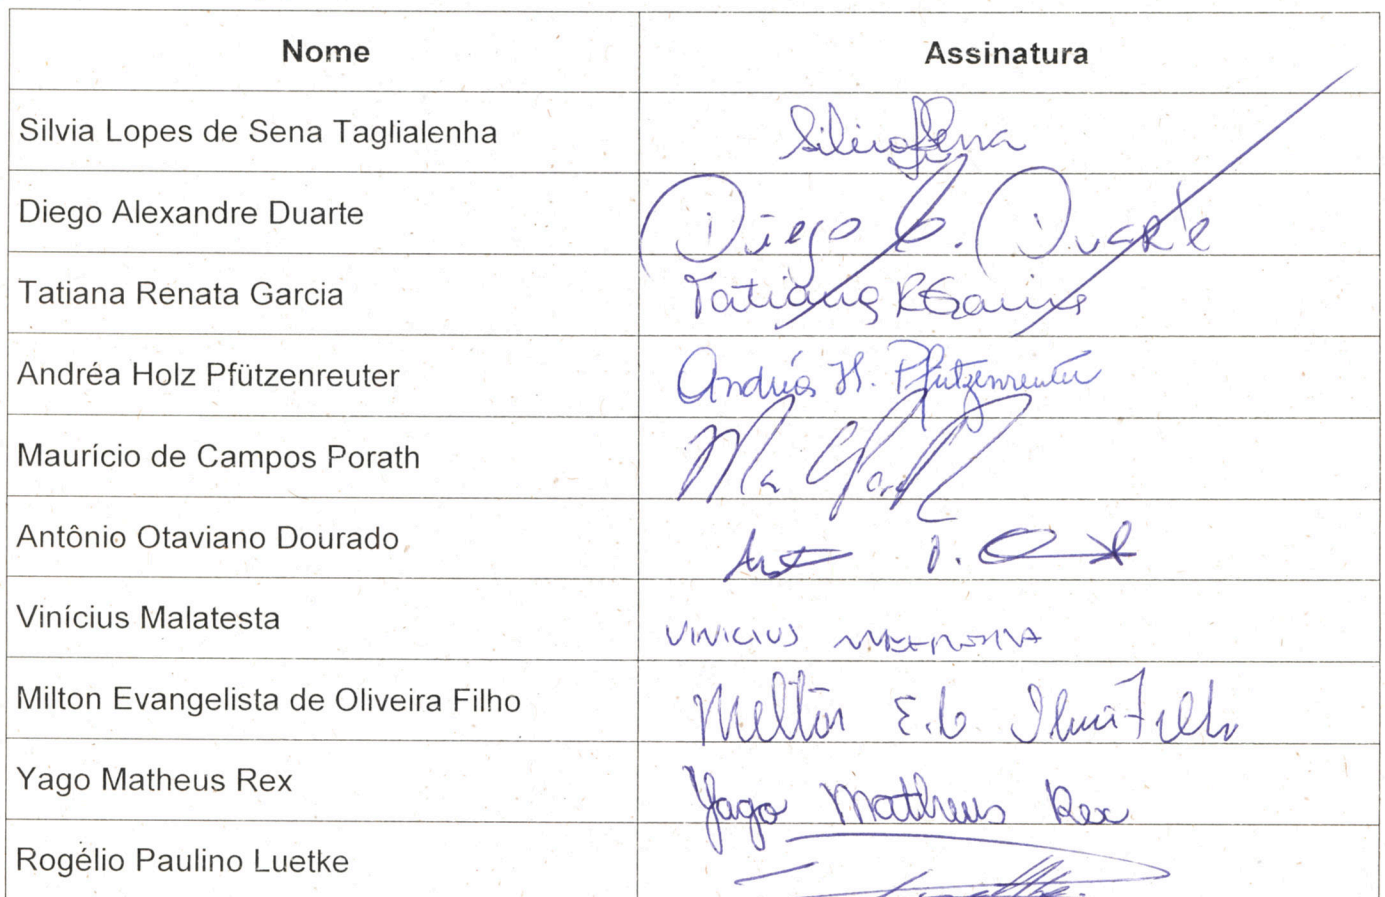 Nome Assinatura
Silvia Lopes de Sena Taglialenha
Diego Alexandre Duarte Diego Duarte
Tatiana Renata Garcia Tatiana
Andréa Holz Pfützenreuter Andréa H. Pfützenreuter
Maurício de Campos Porath
Antônio Otaviano Dourado
Vinícius Malatesta VINICIUS
Milton Evangelista de Oliveira Filho Milton
Yago Matheus Rex Yago Matheus Rex
Rogélio Paulino Luetke